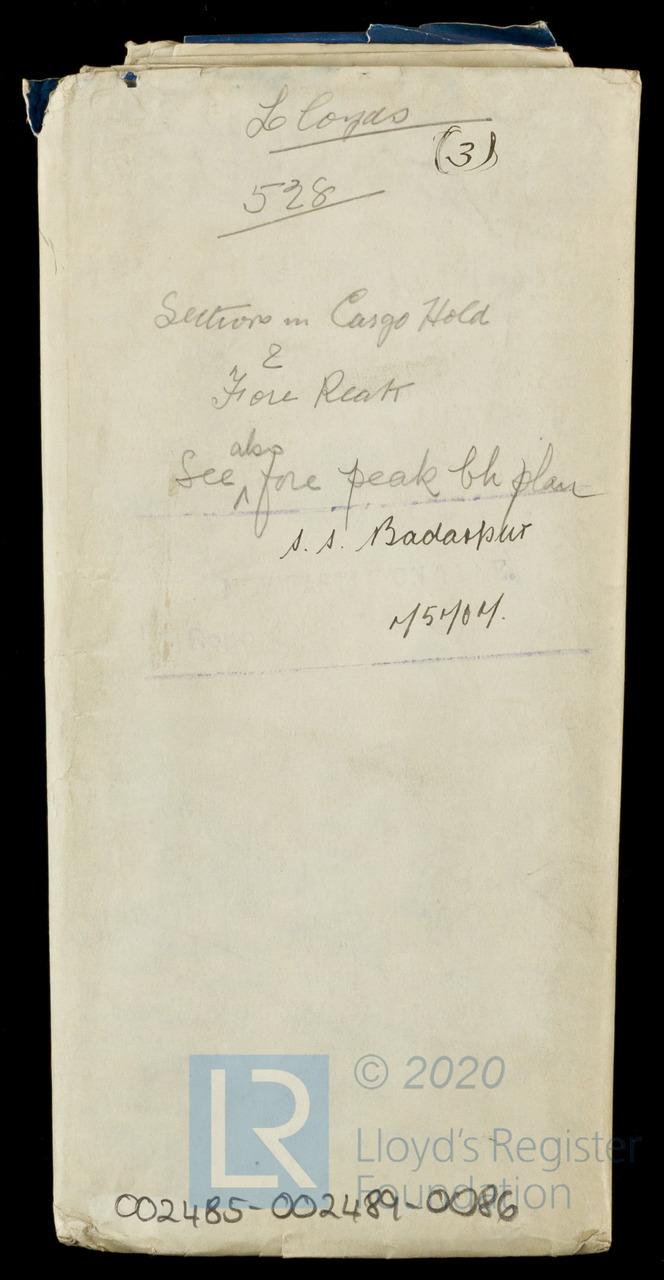 Lloyds
(3)
528
Sections in Cargo Hold
&
Fore Peak
See also fore peak bh plan
s.s. Badarpur
LR
© 2020
Lloyd's Register
Foundation
002485-002489-0086